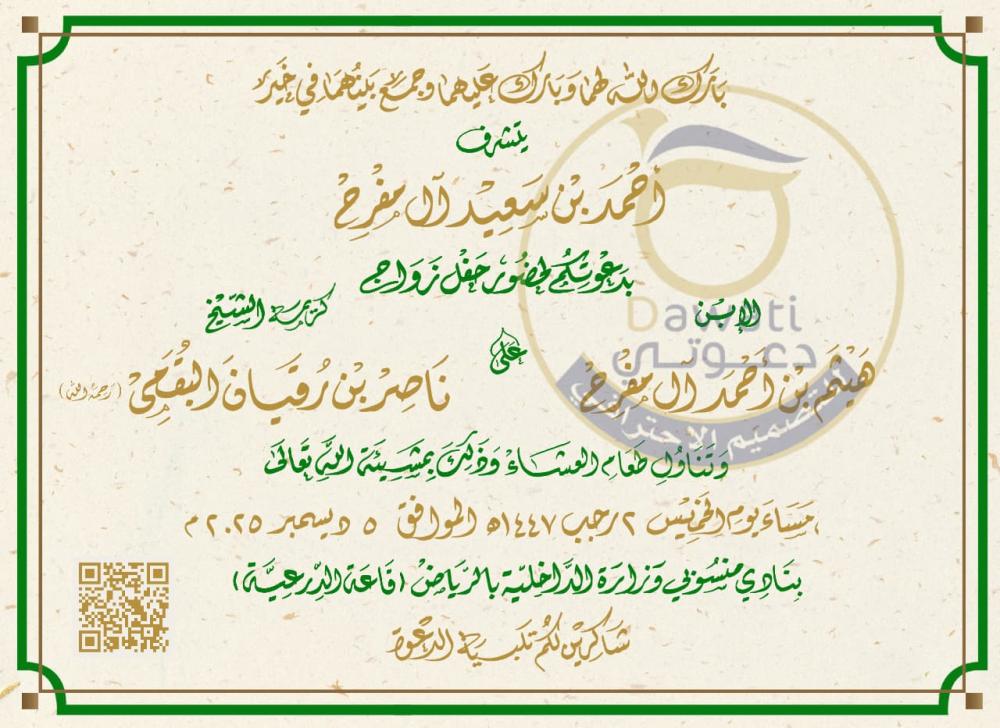 بَارَكَ الله لهما وَبَارَكَ عَليهما وجمع بَيْنهُمَا في خَيْر
يتشرف
أحْمَد بْن سَعِيْد آل مفْرحْ
بدَعْوتكُم لحضُور حَفْل زَوَاج
الابْن
كريمة الشيْخ
هَيْثم بْن أحْمَد آل مفْرحْ
على
نَاصِر بْن رُقيَان البُقَمِيْ (رحمه الله)
وَتَنَاوُل طعَام العشَاءْ وَذَلكَ بمشيئَة اللهِ تعَالىَ
مسَاءَ يوم الخميْس ٢/رجب ١٤٤٧ه الموافق ٥ ديسمبر ٢٠٢٥م
بنَادِي منسُوبي وَزَارة الدَّاخليّة بالريَاضْ (قاعَة الدِّرعيَّة)
شاكريْن لكُم تلبية الدعْوة
Dawati
دعوتي
للتصميم الإحترافي